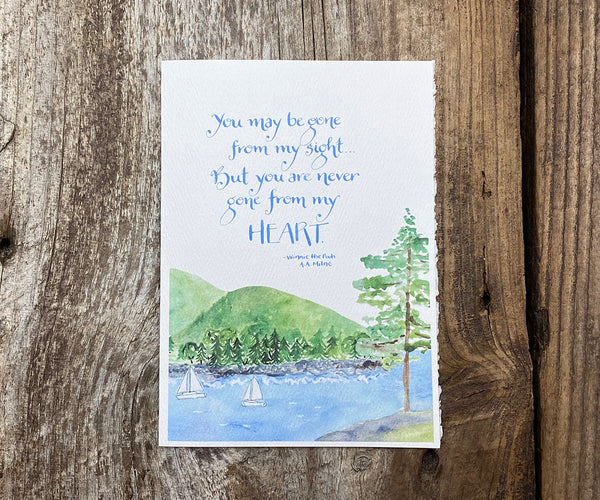 You may be gone
from my sight...
But you are never
gone from my
HEART.
~Winnie the Pooh
A.A. Milne